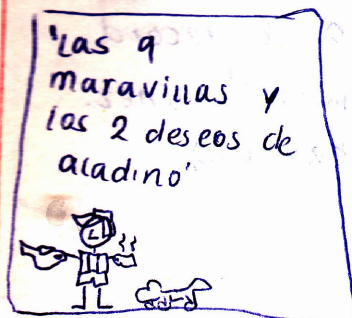 'Las 9
maravillas y
los 2 deseos de
aladino'